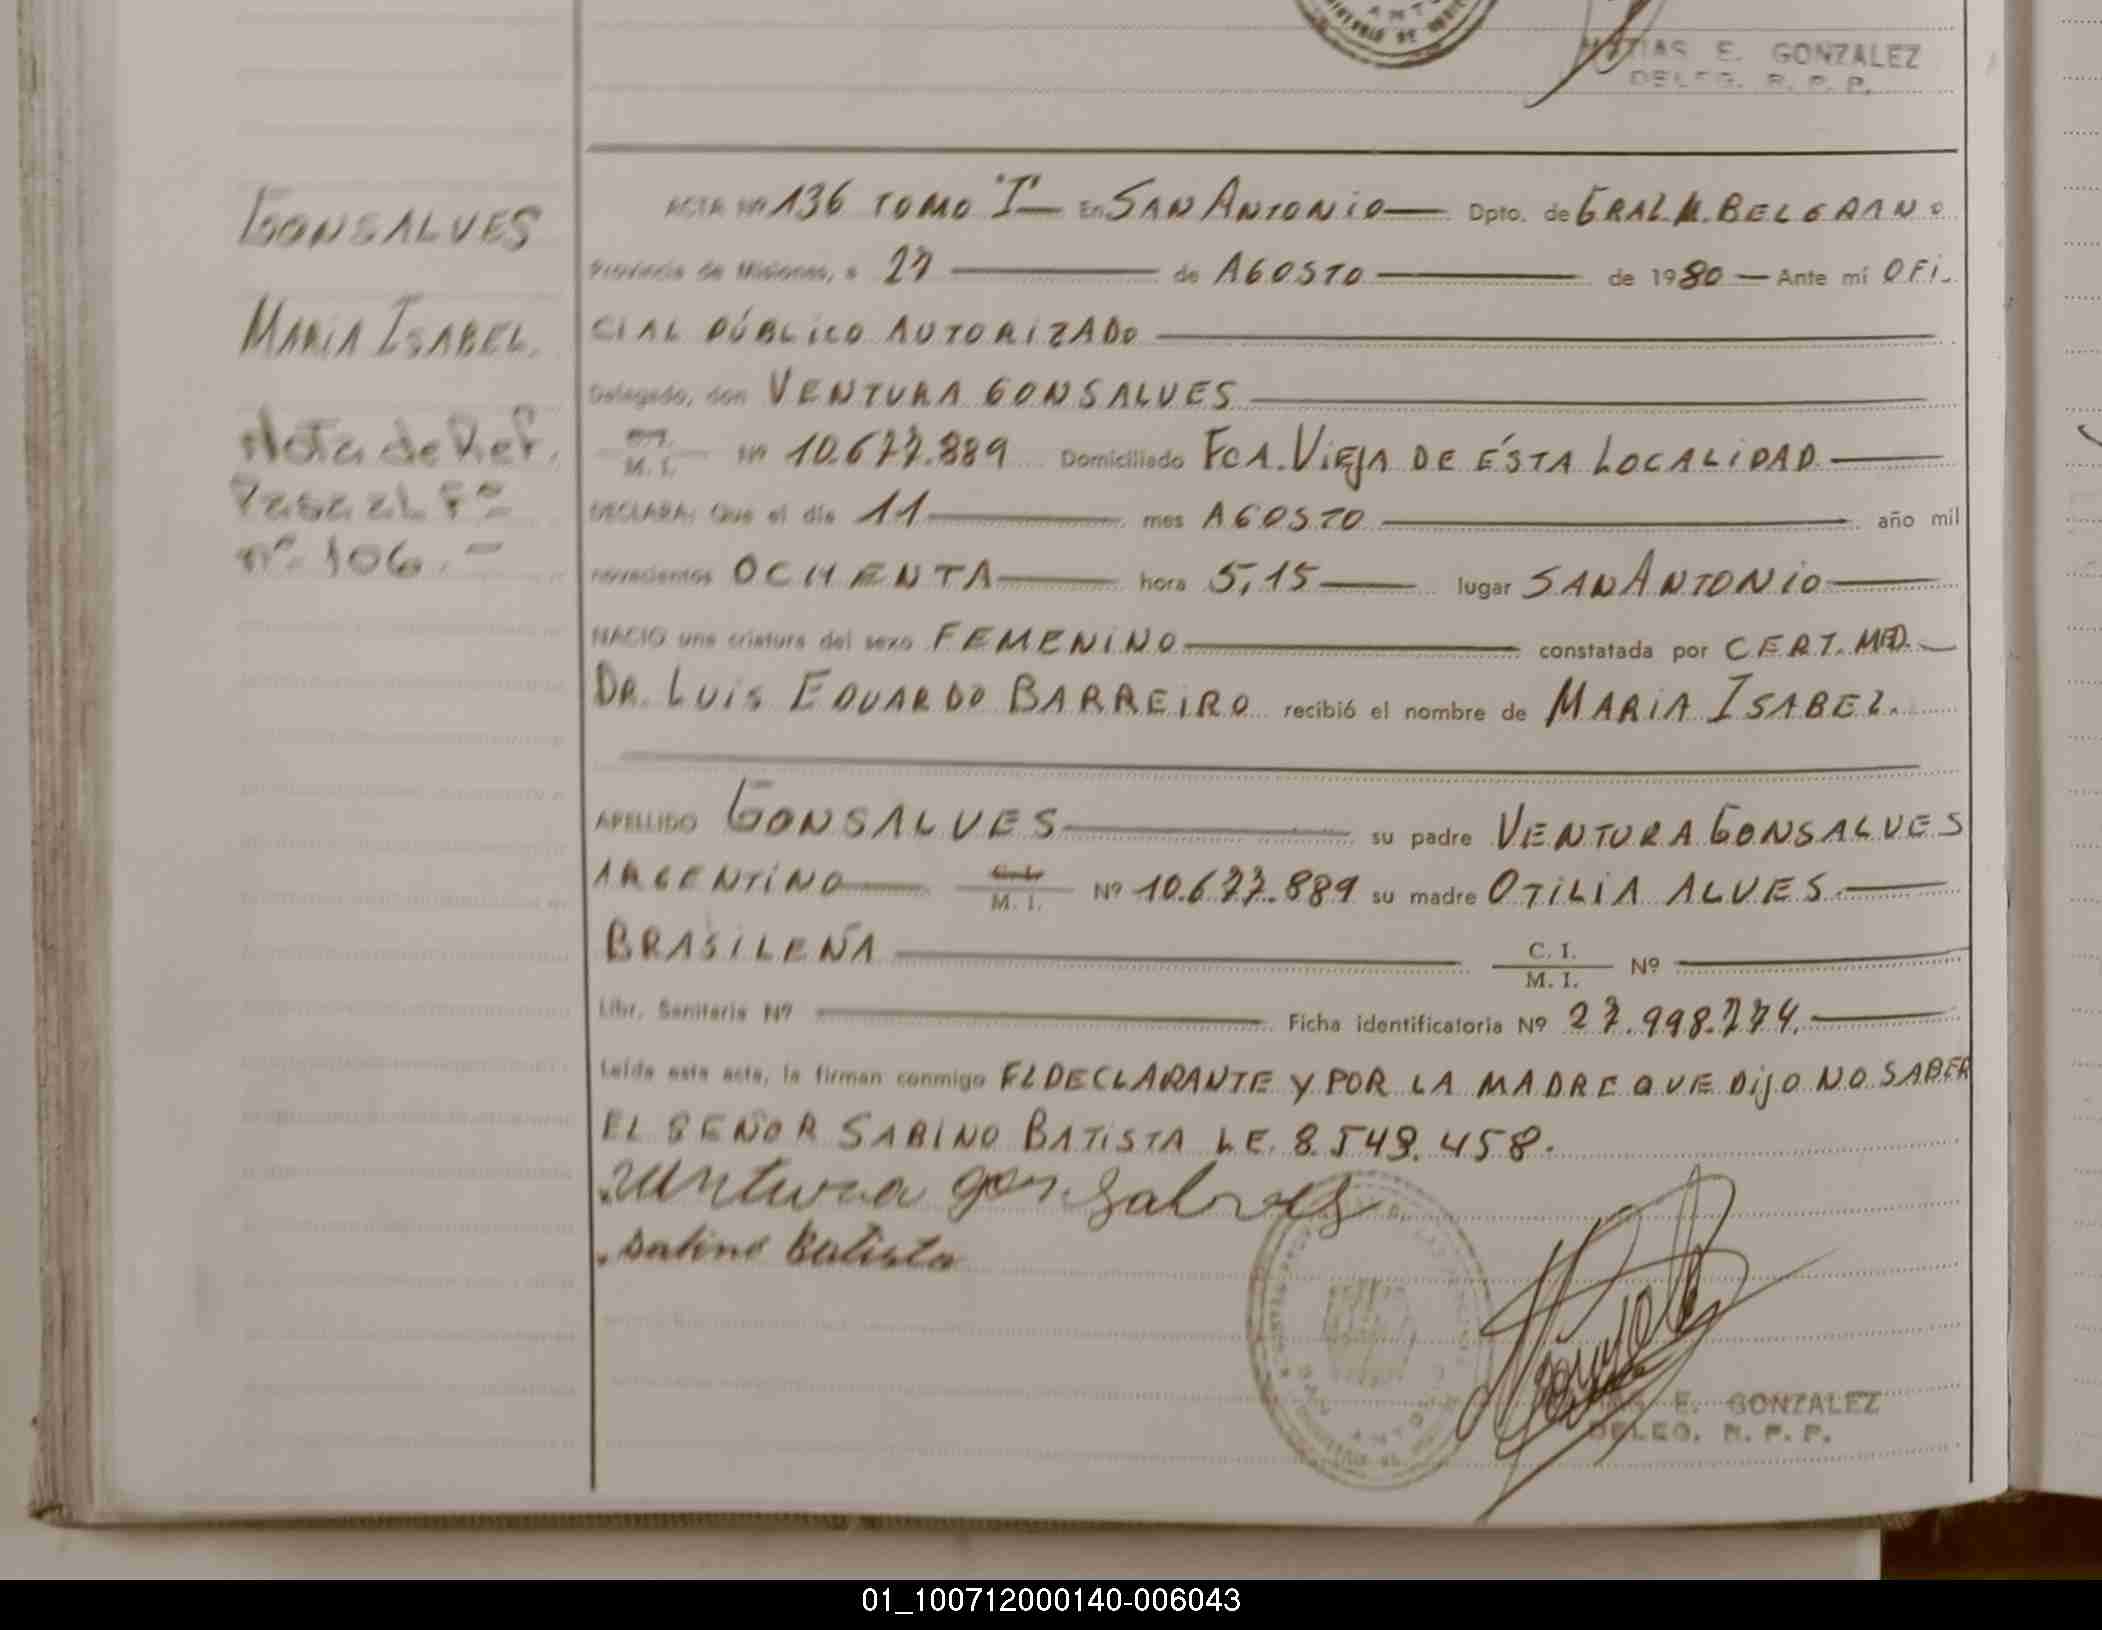 MATIAS E. GONZALEZ
DELEG. R. P. P.
GONSALVES
MARIA ISABEL.
Nota de Ref.
Pasa al Fº
nº 106. -
ACTA Nº 136 TOMO "I" En SAN ANTONIO Dpto. de GRAL M. BELGRANO
Provincia de Misiones, a 27 de AGOSTO de 1980 Ante mí OFI-
CIAL PÚBLICO AUTORIZADO
Delegado, don VENTURA GONSALVES
C. I.
M. I. Nº 10.677.889 Domiciliado FCA. VIEJA DE ÉSTA LOCALIDAD
DECLARA: Que el día 11 mes AGOSTO año mil
novecientos OCHENTA hora 5,15 lugar SAN ANTONIO
NACIO una criatura del sexo FEMENINO constatada por CERT. MED.
DR. LUIS EDUARDO BARREIRO recibió el nombre de MARIA ISABEL.
APELLIDO GONSALVES su padre VENTURA GONSALVES
ARGENTINO C. I. M. I. Nº 10.677.889 su madre OTILIA ALVES
BRASILEÑA C. I. M. I. Nº
Libr. Sanitaria Nº Ficha identificatoria Nº 27.998.774.
Leída esta acta, la firman conmigo EL DECLARANTE Y POR LA MADRE QUE DIJO NO SABER
EL SEÑOR SABINO BATISTA L.E. 8.549.458.
Ventura gonsalves
Sabino Batista
E. GONZALEZ
DELEG. R. P. P.
01_100712000140-006043